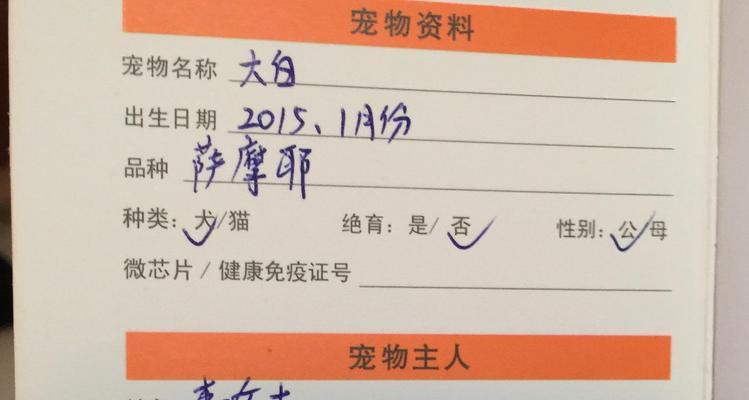 宠物资料
宠物名称 大白
出生日期 2015、1月份
品种 萨摩耶
种类：犬/猫 绝育：是/否 性别：公/母
微芯片/健康免疫证号
宠物主人